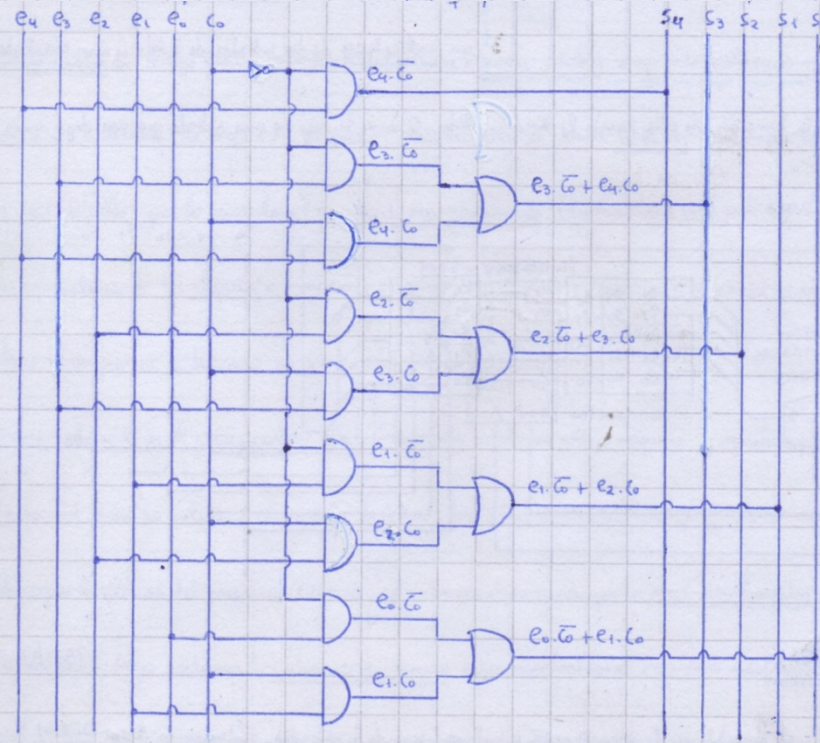 e4 e3 e2 e1 e0 c0 S4 S3 S2 S1 S
e4.c̅0̅
e3.c̅0̅
e3.c̅0̅ + e4.c0
e4.c0
e2.c̅0̅
e2.c̅0̅ + e3.c0
e3.c0
e1.c̅0̅
e1.c̅0̅ + e2.c0
e2.c0
e0.c̅0̅
e0.c̅0̅ + e1.c0
e1.c0